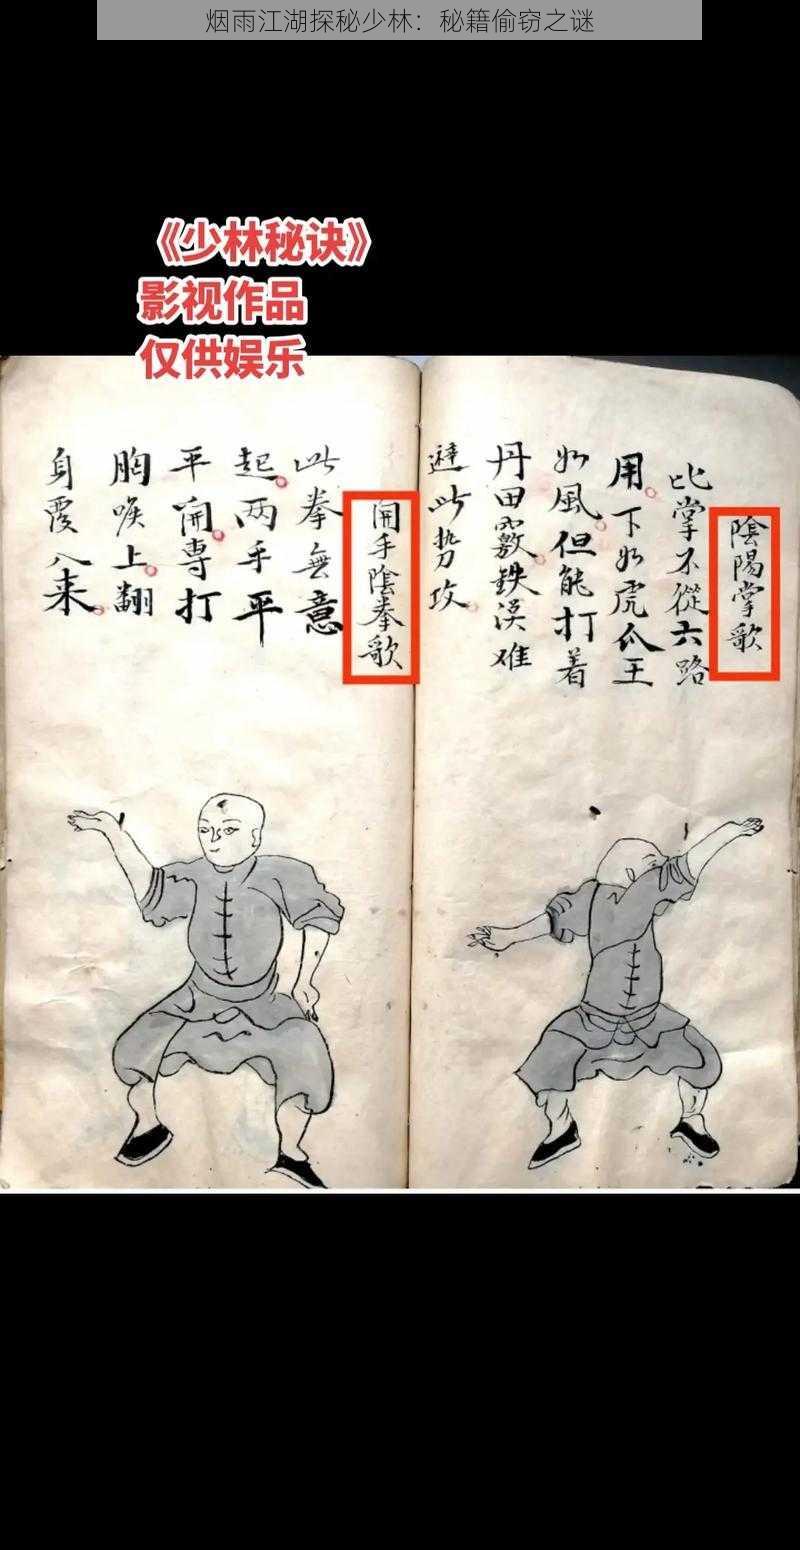 烟雨江湖探秘少林：秘籍偷窃之谜
《少林秘诀》
影视作品
仅供娱乐
陰陽掌歌
比掌不從六路
用下如虎爪王
如風但能打着
丹田竅鉄漢难
避此势攻
開手陰拳歌
此拳無意
起两手平
平開專打
胸喉上翻
身覆入来